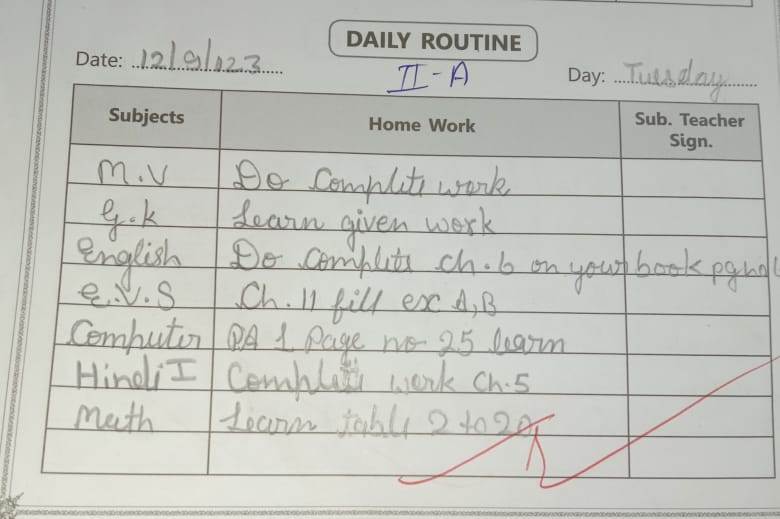 DAILY ROUTINE
Date: 12/9/023
II-A
Day: Tuesday
Subjects Home Work Sub. Teacher Sign.
M.V Do Complite work
G.K Learn given work
English Do Complite ch.6 on your book pg no
E.V.S Ch. 11 fill exc A,B
Computer QA 1 Page no 25 learn
Hindi I Complite work Ch.5
Math Learn table 2 to 20